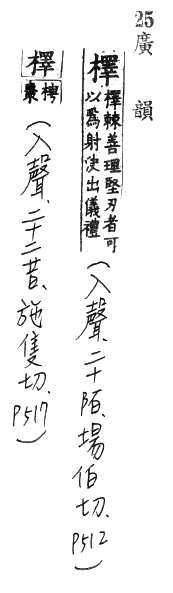 25廣韻
檡 檡棘善理堅刃者可以為射決出儀禮 (入聲、二十陌、場伯切、P512)
檡 梬棗 (入聲、二十二昔、施隻切、P517)